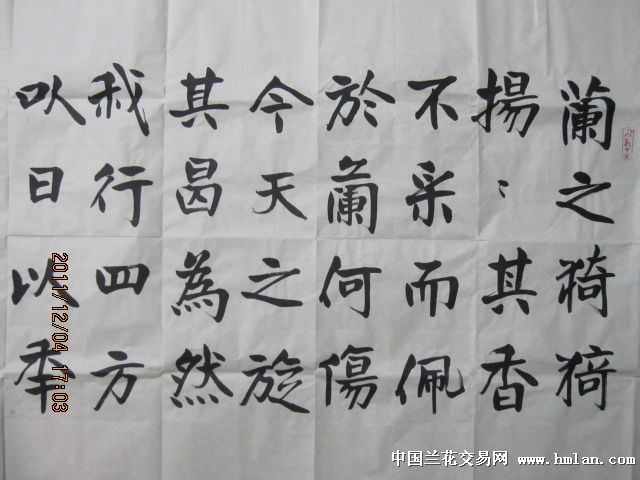 蘭之猗猗
揚〻其香
不采而佩
於蘭何傷
今天之旋
其曷為然
我行四方
以日以年
2011/12/04 17:03
中国兰花交易网 www.hmlan.com